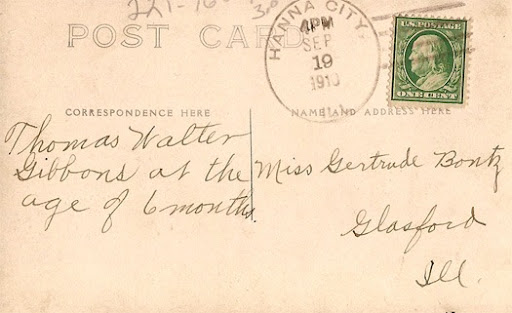 POST CARD
HANNA CITY,
4PM
SEP
19
1910
ILL.
U.S. POSTAGE
ONE CENT
CORRESPONDENCE HERE
Thomas Walter
Gibbons at the
age of 6 months.
NAME AND ADDRESS HERE
Miss Gertrude Bontz
Glasford
Ill.